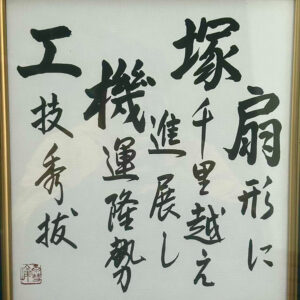 扇形に
塚千里越え
進展し
機運隆勢
工技秀抜